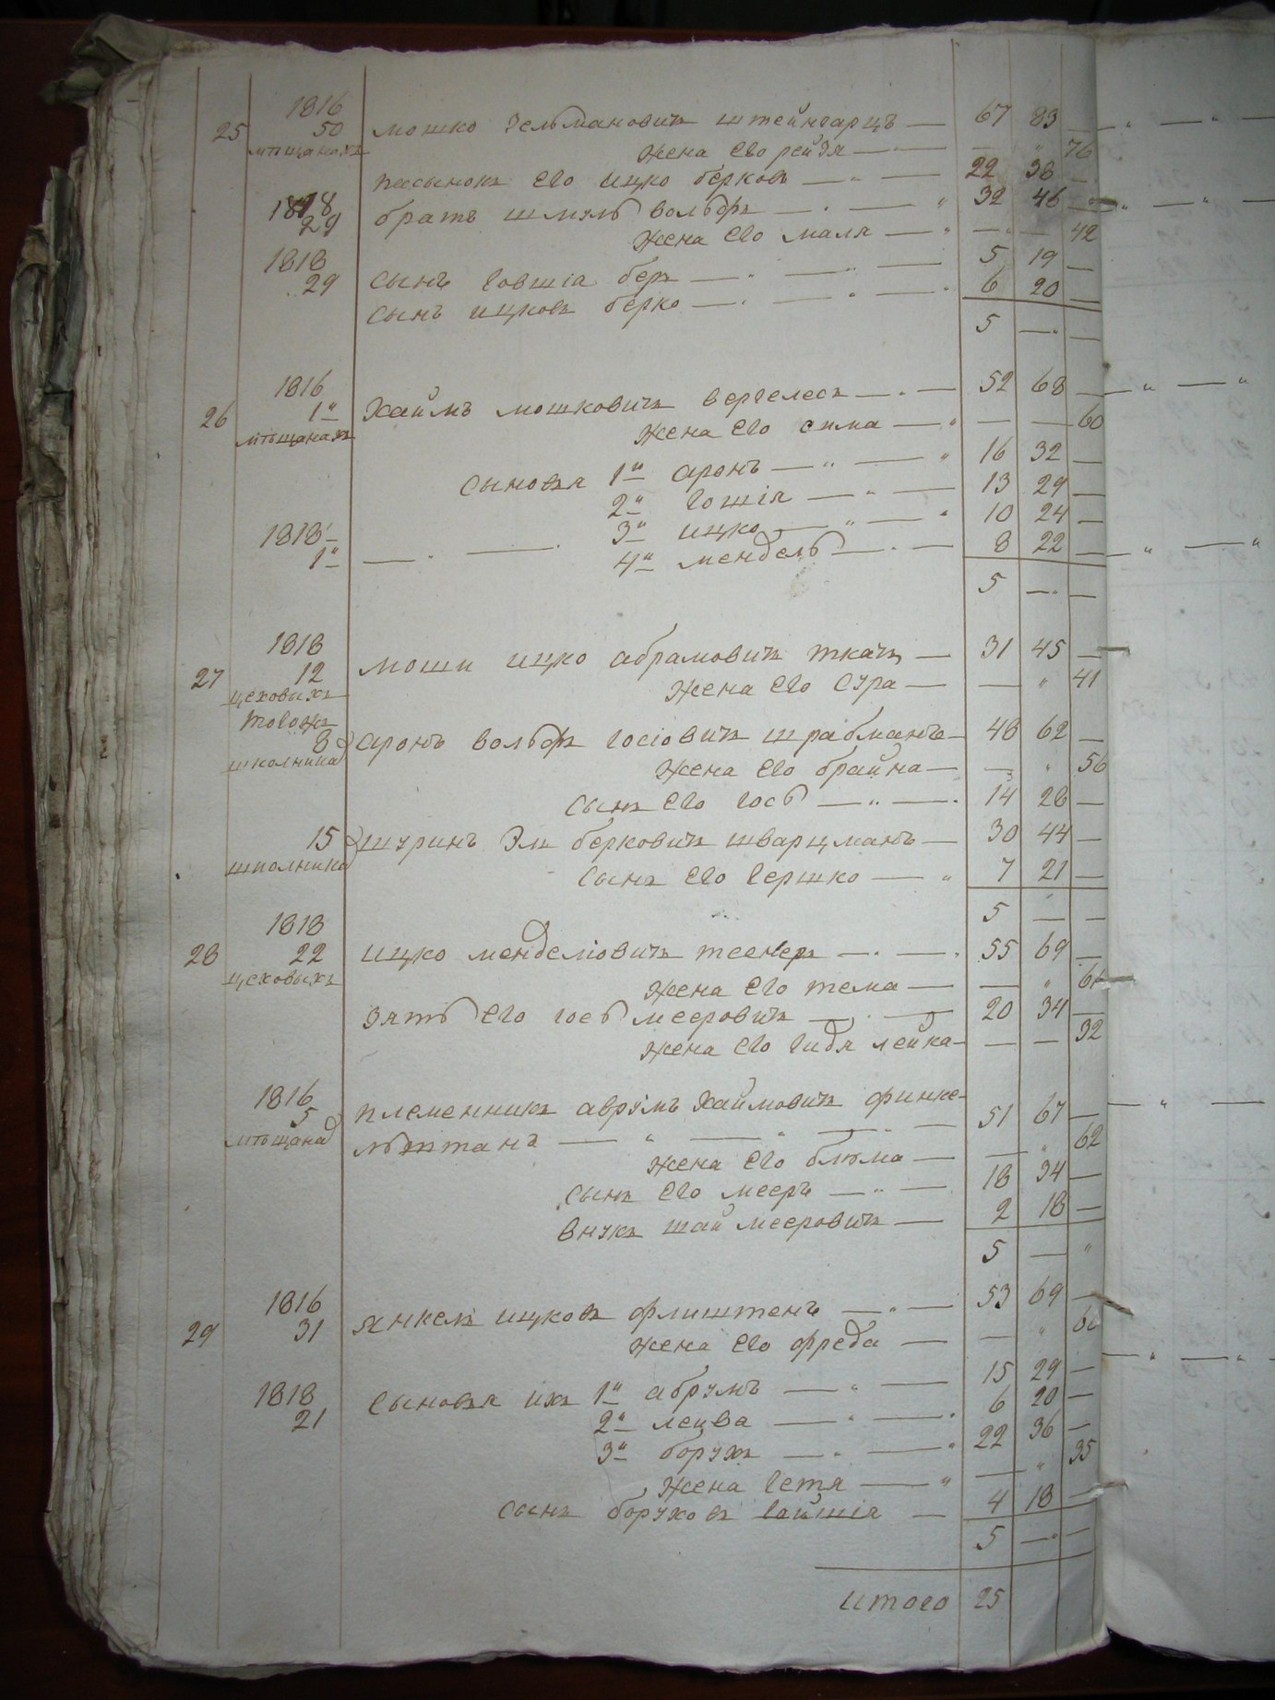 1816
25 50 мошко Зельмановичъ штейнгарцъ — 67 83 —
мѣщанахъ жена его рейзя — — " 76
пасынокъ его ицко берковъ — " — 22 38 —
1818 братъ шмуль вольфъ — . — " 32 46 —
29 жена его маля — " — — 42
1818 сынъ Говшіа беръ — . — " — 5 19 —
29 сынъ ицковъ берко — . — " — " 6 20 —
5 — —
1816
26 1й хаимъ мошковичъ вергелесъ — . — 52 68 —
мѣщанахъ жена его сима — " — — 60
сыновья 1й аронъ — " — " 16 32 —
2й Гошія — " — 13 29 —
1818 3й ицко — " — " 10 24 —
1й — . — . 4й мендель — . — 8 22 —
5 — —
1818
27 12 мошн ицко абрамовичъ ткачъ — 31 45 —
цеховыхъ жена его сура — — " 41
тогожъ
8 аронъ вольфъ Госіовичъ шрабманъ — 48 62 —
школника жена его брайна — — " 56
сынъ его Госб — " — . 14 28 —
15 шуринъ Эль берковичъ шварцманъ — 30 44 —
школника сынъ его Гершко — " 7 21 —
5 — —
1818
28 22 ицко менделіовичъ тесперъ — . — . 55 69 —
цеховыхъ жена его тема — — " 61
зять его Госб мееровичъ — . — 20 34 —
жена его Гидя лейка — — — 32
1816
5 племенникъ аврумъ хаимовичъ финке-
мѣщана льштанъ — " — " — " — 51 67 —
жена его блюма — — " 62
сынъ его мееръ — " — 18 34 —
внукъ шаи мееровичъ — 2 18 —
5 — "
1816
29 31 янкель ицковъ флиштенъ — . — 53 69 —
жена его фреда — — "
1818 сыновья ихъ 1й абрумъ — " — 15 29 —
21 2й лейва — " — . 6 20 —
3й борухъ — . — " 22 36 —
жена Гетя — " — " 35
сынъ боруховъ Гайшія — 4 18 —
5 — —
итого 25